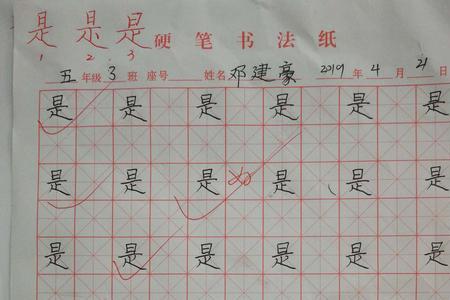 是 是 是 硬笔书法纸
1 2 3
五年级 3 班 座号 姓名 邓建豪 2019 年 4 月 21 日
是 是 是 是 是 是
是 是 是 是 是 是
是 是 是 是 是 是